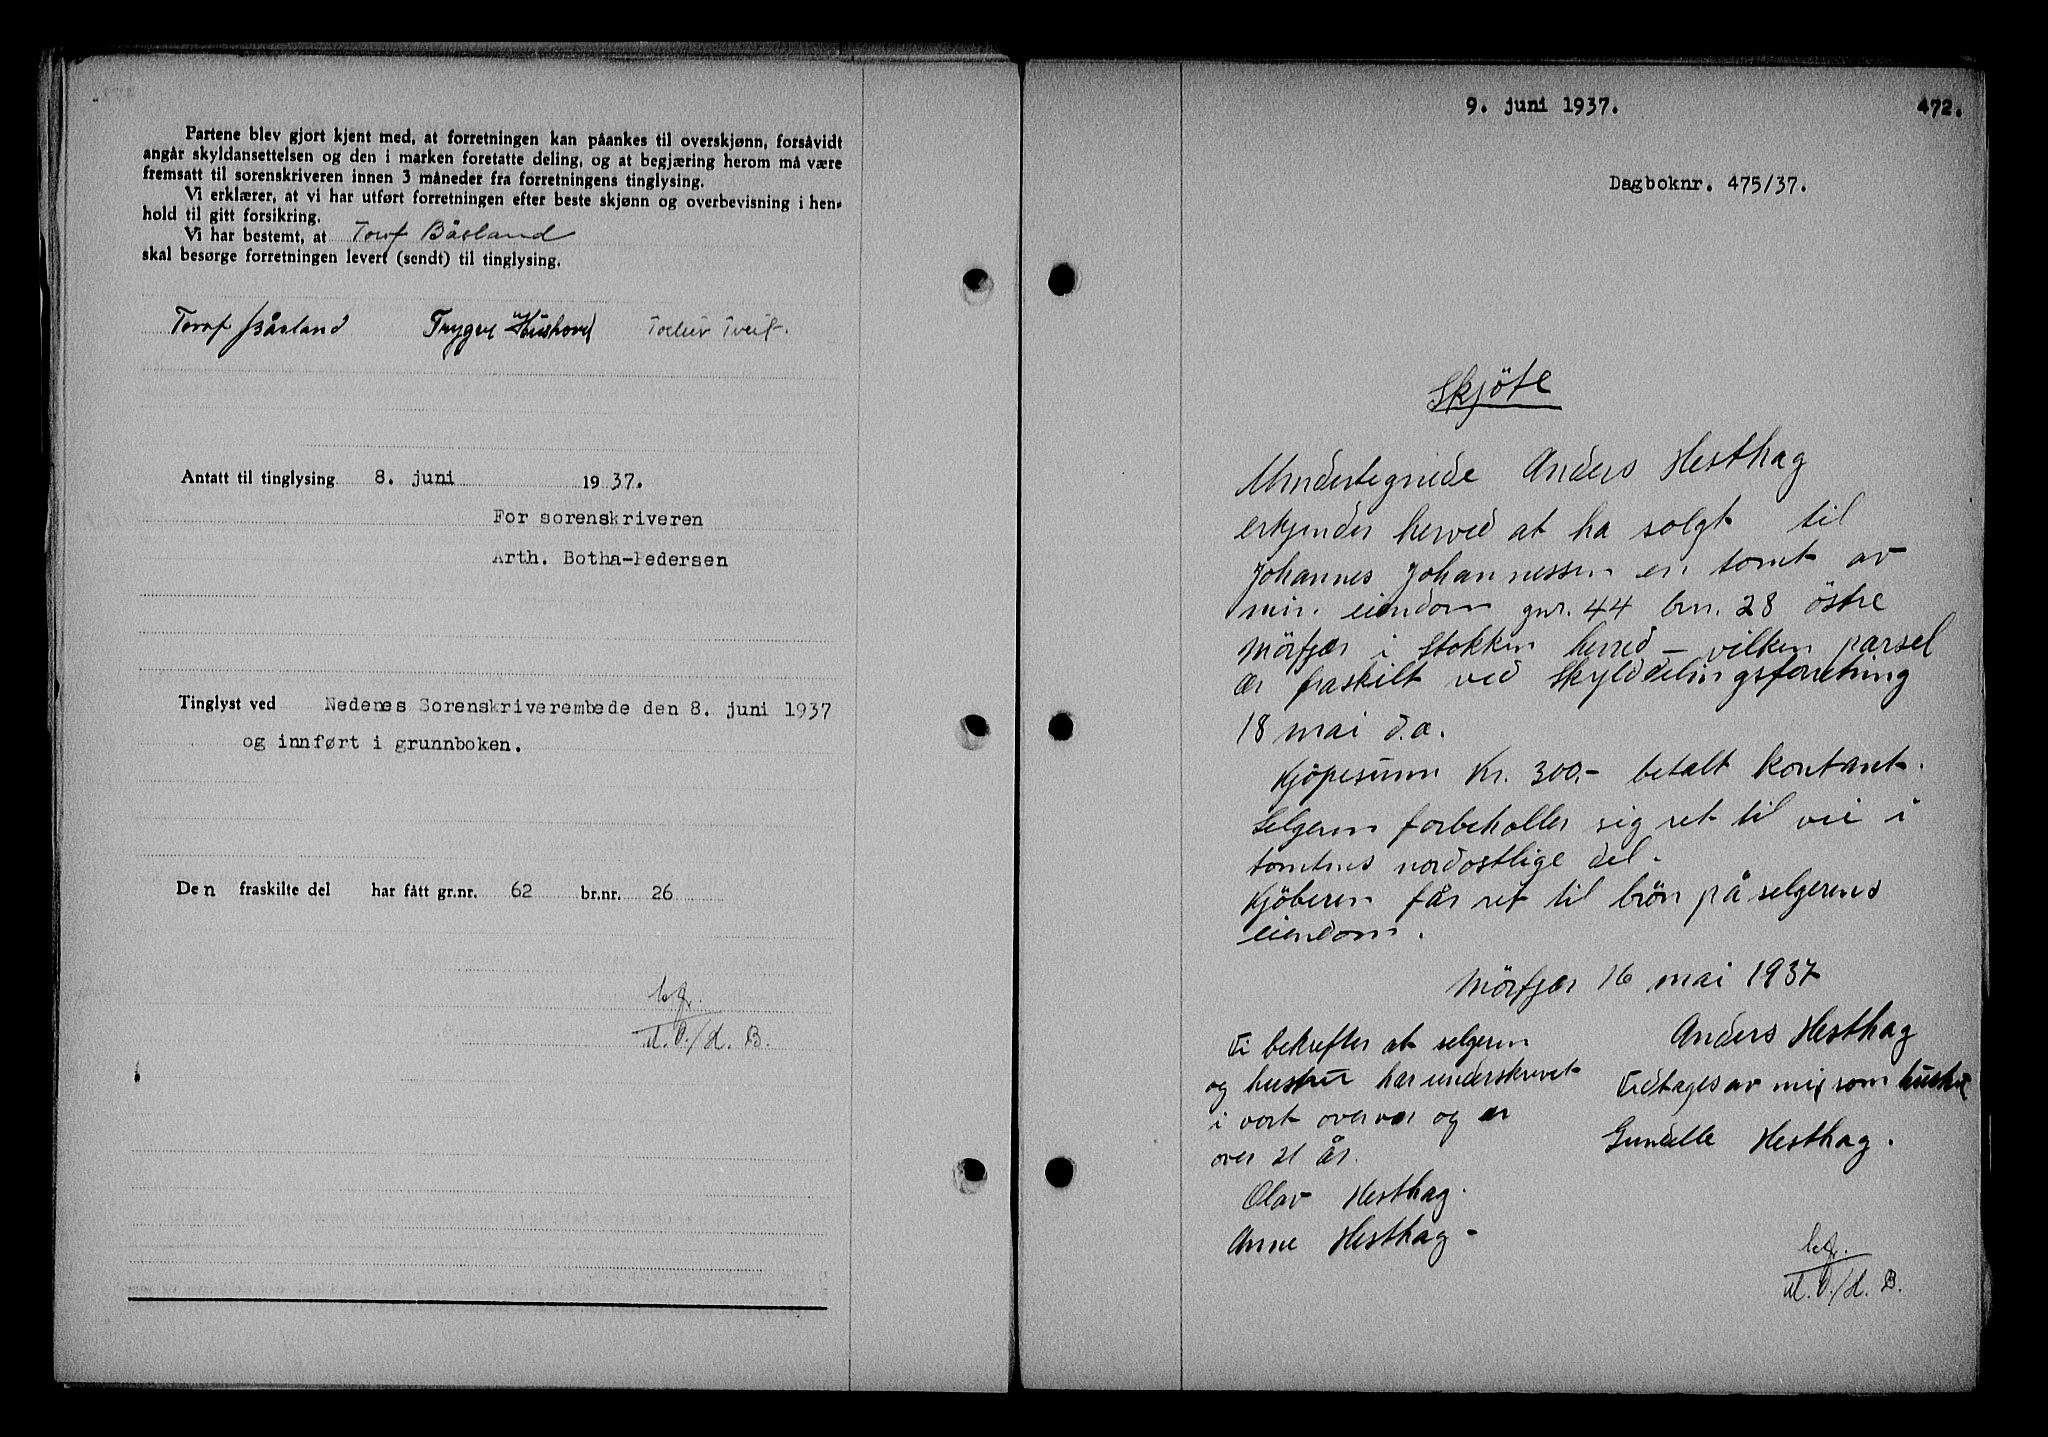 Partene blev gjort kjent med, at forretningen kan påankes til overskjønn, forsåvidt
angår skyldansettelsen og den i marken foretatte deling, og at begjæring herom må være
fremsatt til sorenskriveren innen 3 måneder fra forretningens tinglysing.
Vi erklærer, at vi har utført forretningen efter beste skjønn og overbevisning i hen-
hold til gitt forsikring.
Vi har bestemt, at Toraf Båsland
skal besørge forretningen levert (sendt) til tinglysing.
Toraf Båsland Trygve Haushovd Torleiv Tveit.
Antatt til tinglysing 8. juni 1937.
For sorenskriveren
Arth. Botha-Pedersen
Tinglyst ved Nedenes Sorenskriverembede den 8. juni 1937
og innført i grunnboken.
Den fraskilte del har fått gr.nr. 62 br.nr. 26
9. juni 1937. 472.
Dagboknr. 475/37.
Skjöte
Undertegnede Anders Hesthag
erkjender herved at ha solgt til
Johannes Johannessen en tomt av
min eiendom gnr. 44 brn. 28 östre
Mörfjær i Stokken herred - vilken parsel
er fraskilt ved Skylddelingsforretning
18 mai d.a.
Kjöpesum Kr. 300,- betalt kontant.
Selgeren forbeholler sig ret til vei i
tomtnes nordostlige del.
Kjöberen får ret til brön på selgerens
eiendom.
Mörfjær 16 mai 1937
Anders Hesthag
Vi bekrefter at selgeren
og hustru har underskrevet
i vort overvær og er
over 21 år.
Olav Hesthag.
Anne Hesthag -
Vedtages av mig som hustru
Gunelle Hesthag.